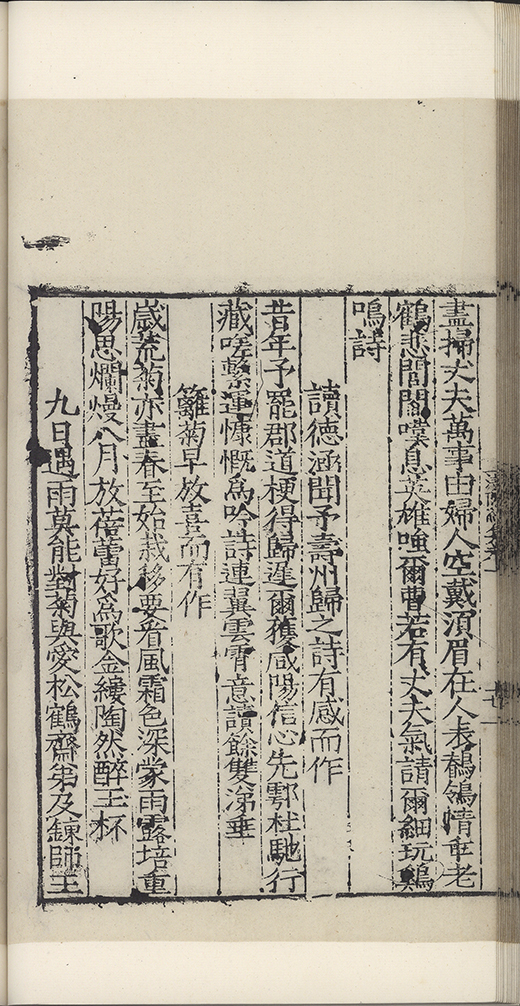 盡掃丈夫萬事由婦人空戴須眉在人表鶺鴒情重老
鶴悲閭閻嘆息英雄嗤爾曹若有丈夫氣請爾細玩鷄
鳴詩
讀德涵聞予壽州歸之詩有感而作
昔年予罷郡道梗得歸遲爾獲咸陽信心先鄠杜馳行
藏嗟繫運慷慨為吟詩連翼雲霄意讀餘雙涕垂
籬菊早放喜而有作
歲荒菊亦盡春至始栽移要看風霜色深蒙雨露培重
陽思爛熳八月放蓓蕾好為歌金縷陶然醉玉杯
九日遇雨莫能對菊與愛松鶴齋弟及鍊師王